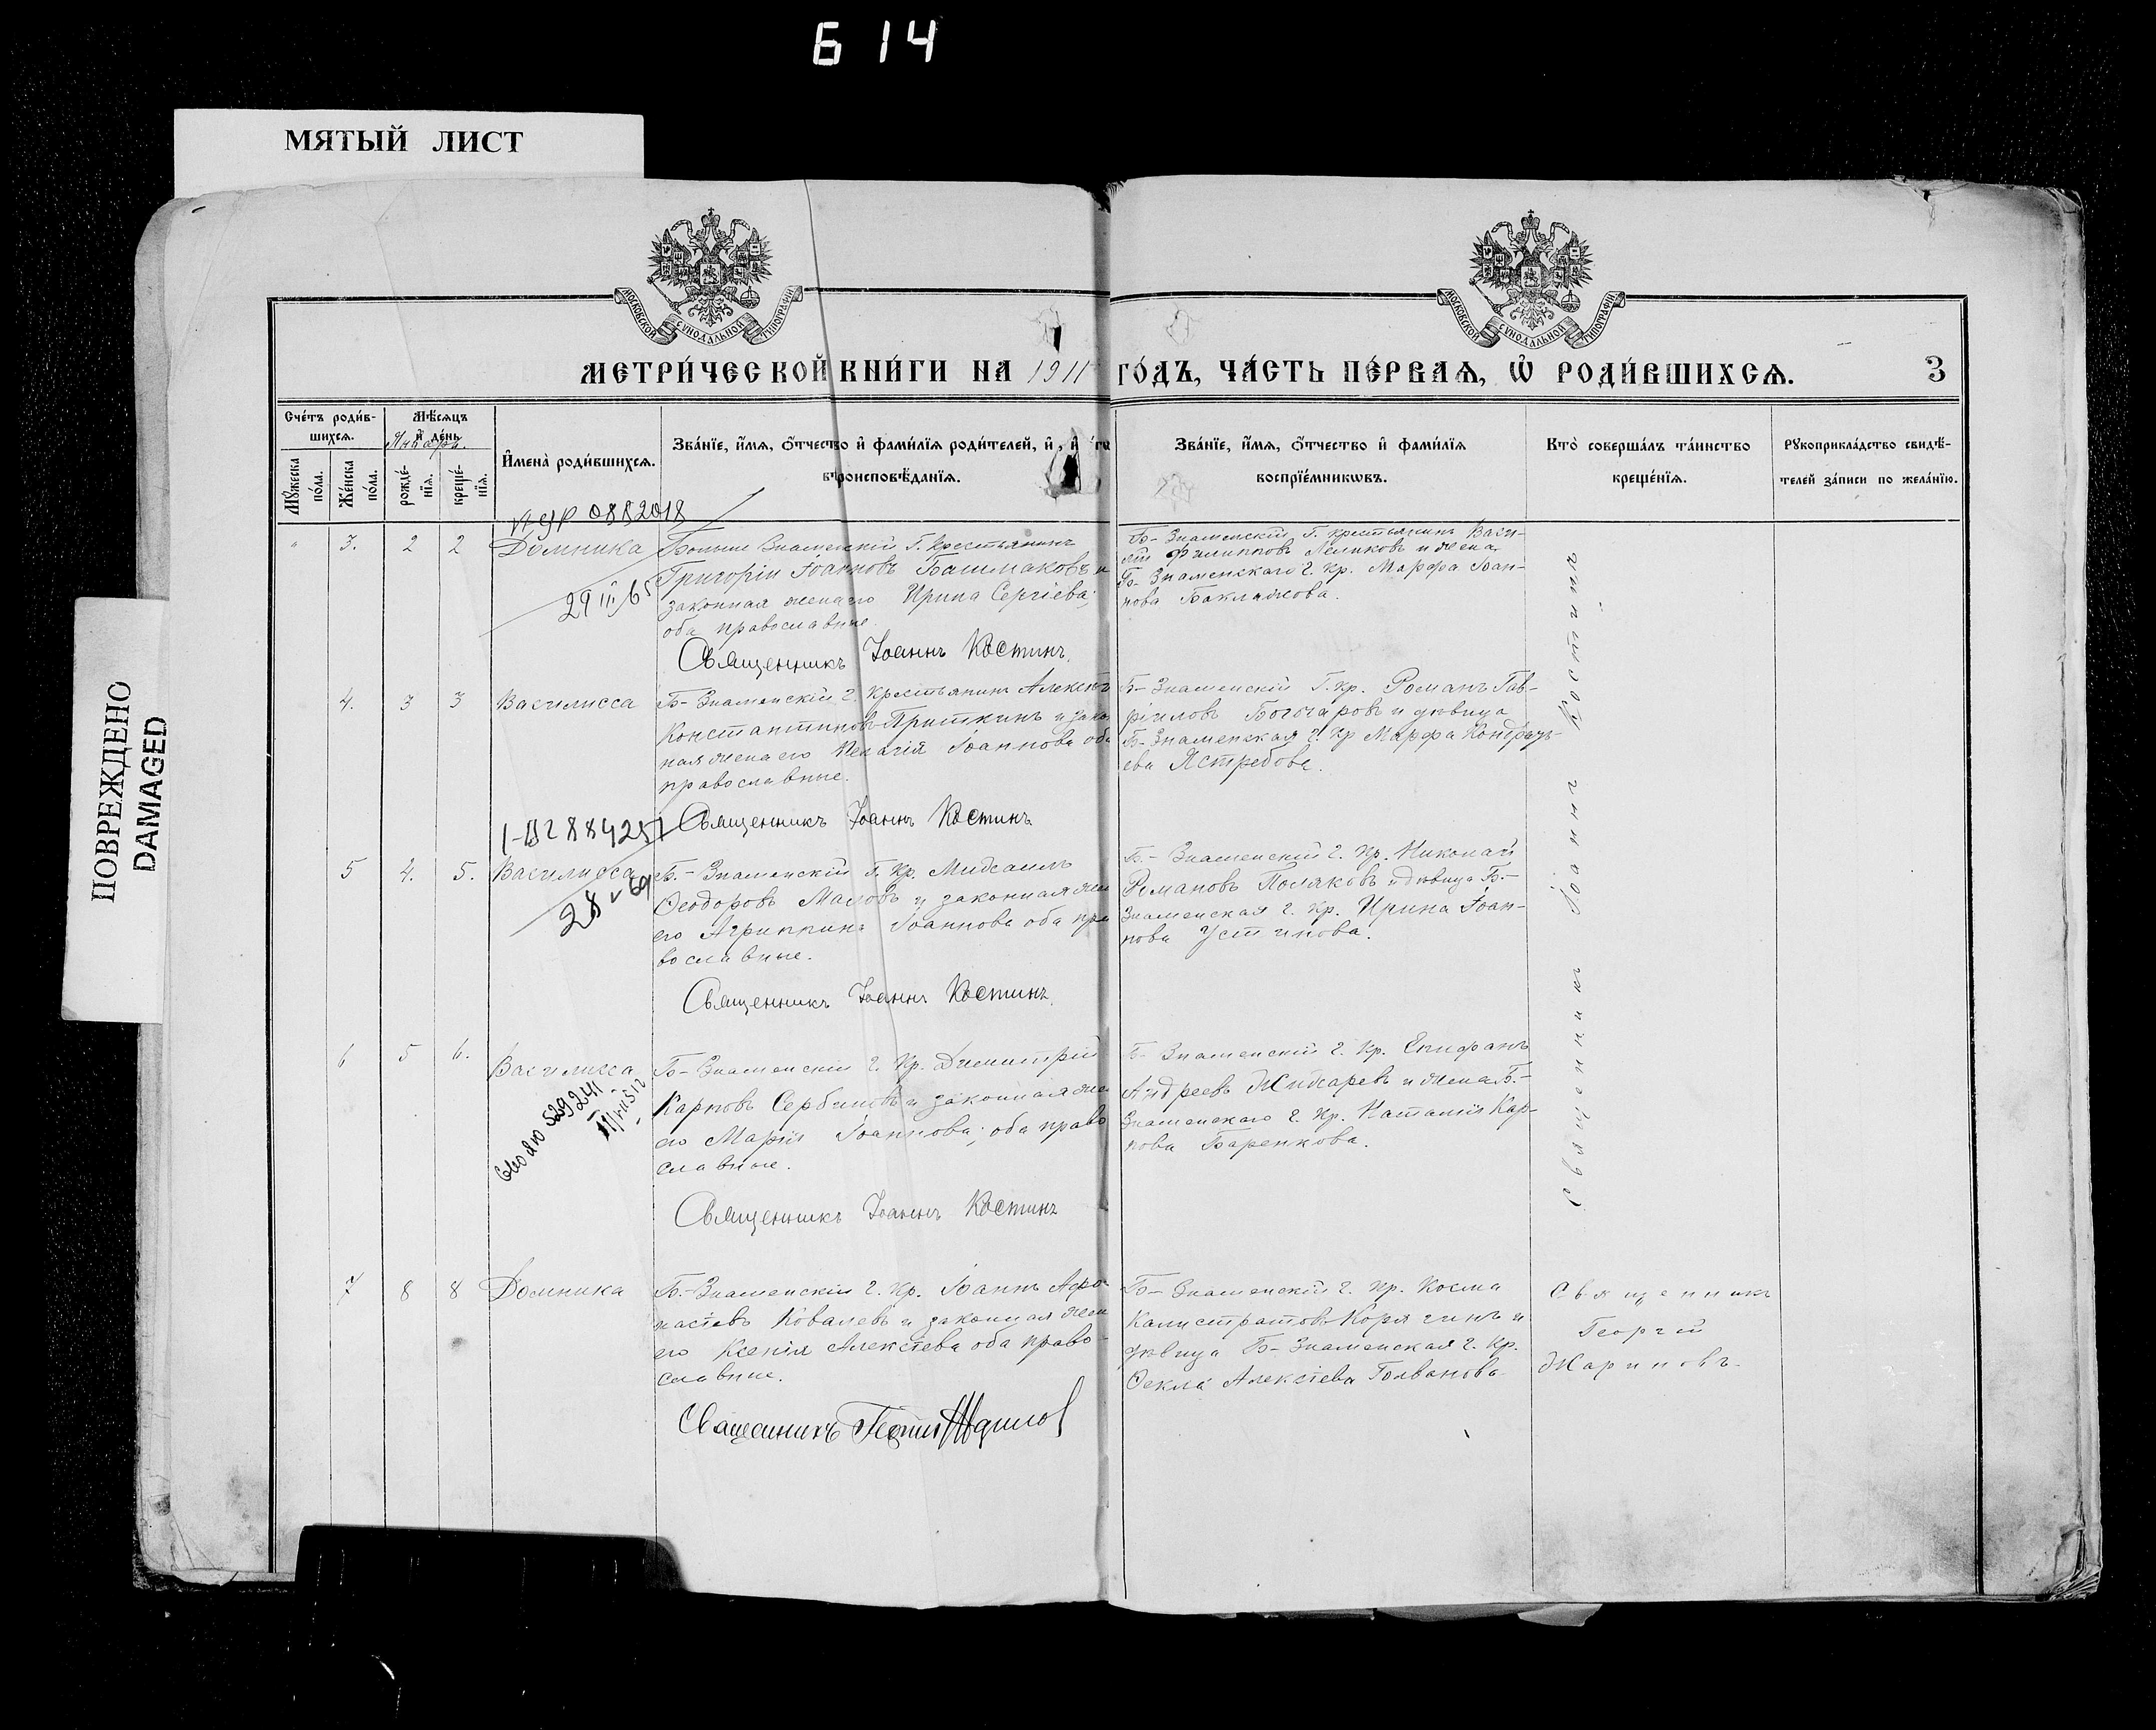 Б 14
МЯТЫЙ ЛИСТ
ПОВРЕЖДЕНО
DAMAGED
МОСКОВСКОЙ СѴНОДАЛЬНОЙ ТИПОГРАФІИ
МОСКОВСКОЙ СѴНОДАЛЬНОЙ ТИПОГРАФІИ
МЕТРИ́ЧЕСКОЙ КНИ́ГИ НА 1911 ГО́ДЪ, ЧА́СТЬ ПЕ́РВАѦ, Ѡ҆ РОДИ́ВШИХСѦ.
3
Сче́тъ роди́в-
шихсѧ.
Мꙋ́жеска по́ла.
Же́нска по́ла.
Мѣ́сѧцъ
и҆ де́нь
Январь.
рожде́-
нїѧ.
креще́-
нїѧ.
И҆мена̀ роди́вшихсѧ.
Зва́нїе, и҆́мѧ, ѻ҆́тчество и҆ фами́лїѧ роди́телей, и҆
вѣроисповѣ́данїѧ.
Зва́нїе, и҆́мѧ, ѻ҆́тчество и҆ фами́лїѧ
воспрїе́мникѡвъ.
Кто̀ соверша́лъ та́инство
креще́нїѧ.
Рꙋкоприкла́дство свидѣ́-
телей за́писи по жела́нїю.
0882018
" 3. 2 2 Домника
29 III 65
Больше Знаменскій Г. Крестьянинъ
Григорій Іоанновъ Башмаковъ и
законная жена его Ирина Сергіева;
оба православные.
Священникъ Іоаннъ Костинъ.
Б-Знаменскій Г. крестьянинъ Васи-
лій Филипповъ Лемиковъ и жена
Б-Знаменскаго г. кр. Марфа Іоан-
нова Баклажова.
4. 3 3 Василисса
Б-Знаменскій г. Крестьянинъ Алексѣй
Константиновъ Приткинъ и закон
ная жена его Пелагія Іоаннова оба
православные.
Священникъ Іоаннъ Костинъ
Б-Знаменскій Г. кр. Романъ Гав-
ріиловъ Богочаровъ и дѣвица
Б-Знаменская г. Кр Марфа Кондрать-
ева Ястребова.
884251
5 4. 5. Василисса
28 V 69
Б.-Знаменскій Г. Кр. Мисаилъ
Ѳеодоровъ Маловъ и законная жена
его Агриппина Іоаннова оба пра
вославные.
Священникъ Іоаннъ Костинъ.
Б.-Знаменскій г. Кр. Николай
Романовъ Поляковъ и дѣвица Б.-
Знаменская г. Кр. Ирина Іоан-
нова Устинова.
6 5 6. Василисса
529241
Б-Знаменскій г. Кр. Димитрій
Карповъ Сербиновъ и законная жена
его Марія Іоаннова; оба право
славные.
Священникъ Іоаннъ Костинъ
Б-Знаменскій г. Кр. Епифанъ
Андреевъ Жихаревъ и жена Б.-
Знаменскаго г. Кр. Наталія Кар-
пова Баренкова.
Священникъ Іоаннъ Костинъ
7 8 8 Домника
Б.-Знаменскій г. Кр. Іоаннъ Афа-
насіевъ Ковалевъ и законная жена
его Ксенія Алексіева оба право-
славные.
Священникъ Георгій Жариновъ
Б-Знаменскій г. Кр. Косма
Калистратовъ Корягинъ и
дѣвица Б-Знаменская г. Кр.
Ѳекла Алексіева Голванова.
Священникъ
Георгій
Жариновъ.